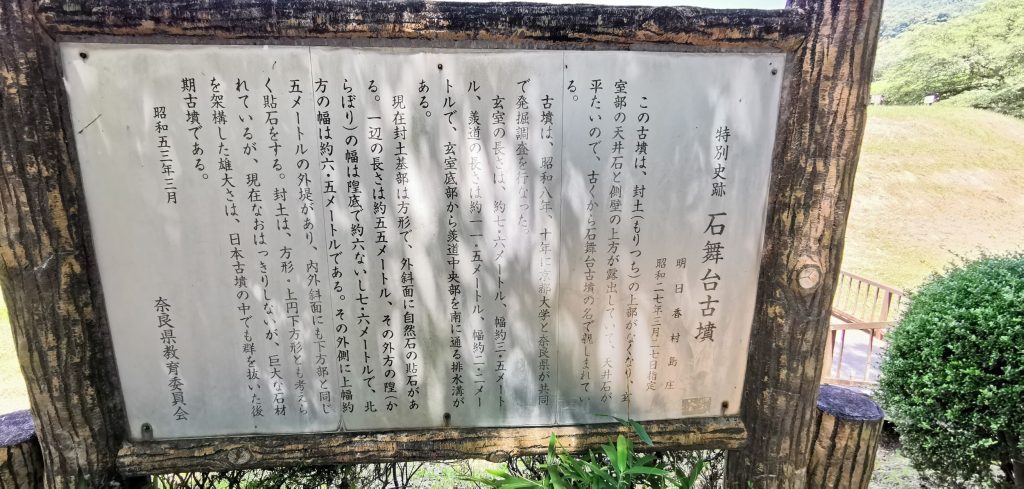 特別史跡　石舞台古墳
明日香村島庄
昭和二七年三月二七日指定
この古墳は、封土(もりつち)の上部がなくなり、玄
室部の天井石と側壁の上方が露出していて、天井石が
平たいので、古くから石舞台古墳の名で親しまれてい
る。
古墳は、昭和八年、十年に京都大学と奈良県が共同
で発掘調査を行なった。
玄室の長さは、約七・六メートル、幅約三・五メート
ル、羨道の長さは約一一・五メートル、幅約二・二メー
トルで、玄室底部から羨道中央部を南に通る排水溝が
ある。
現在封土基部は方形で、外斜面に自然石の貼石があ
る。一辺の長さは約五五メートル、その外方の隍(か
らぼり)の幅は隍底で約六ないし七・六メートルで、北
方の幅は約六・五メートルである。その外側に上幅約
五メートルの外堤があり、内外斜面にも下方部と同じ
く貼石をする。封土は、方形・上円下方形とも考えら
れているが、現在なおはっきりしないが、巨大な石材
を架構した雄大さは、日本古墳の中でも群を抜いた後・
期古墳である。
昭和五三年三月
奈良県教育委員会